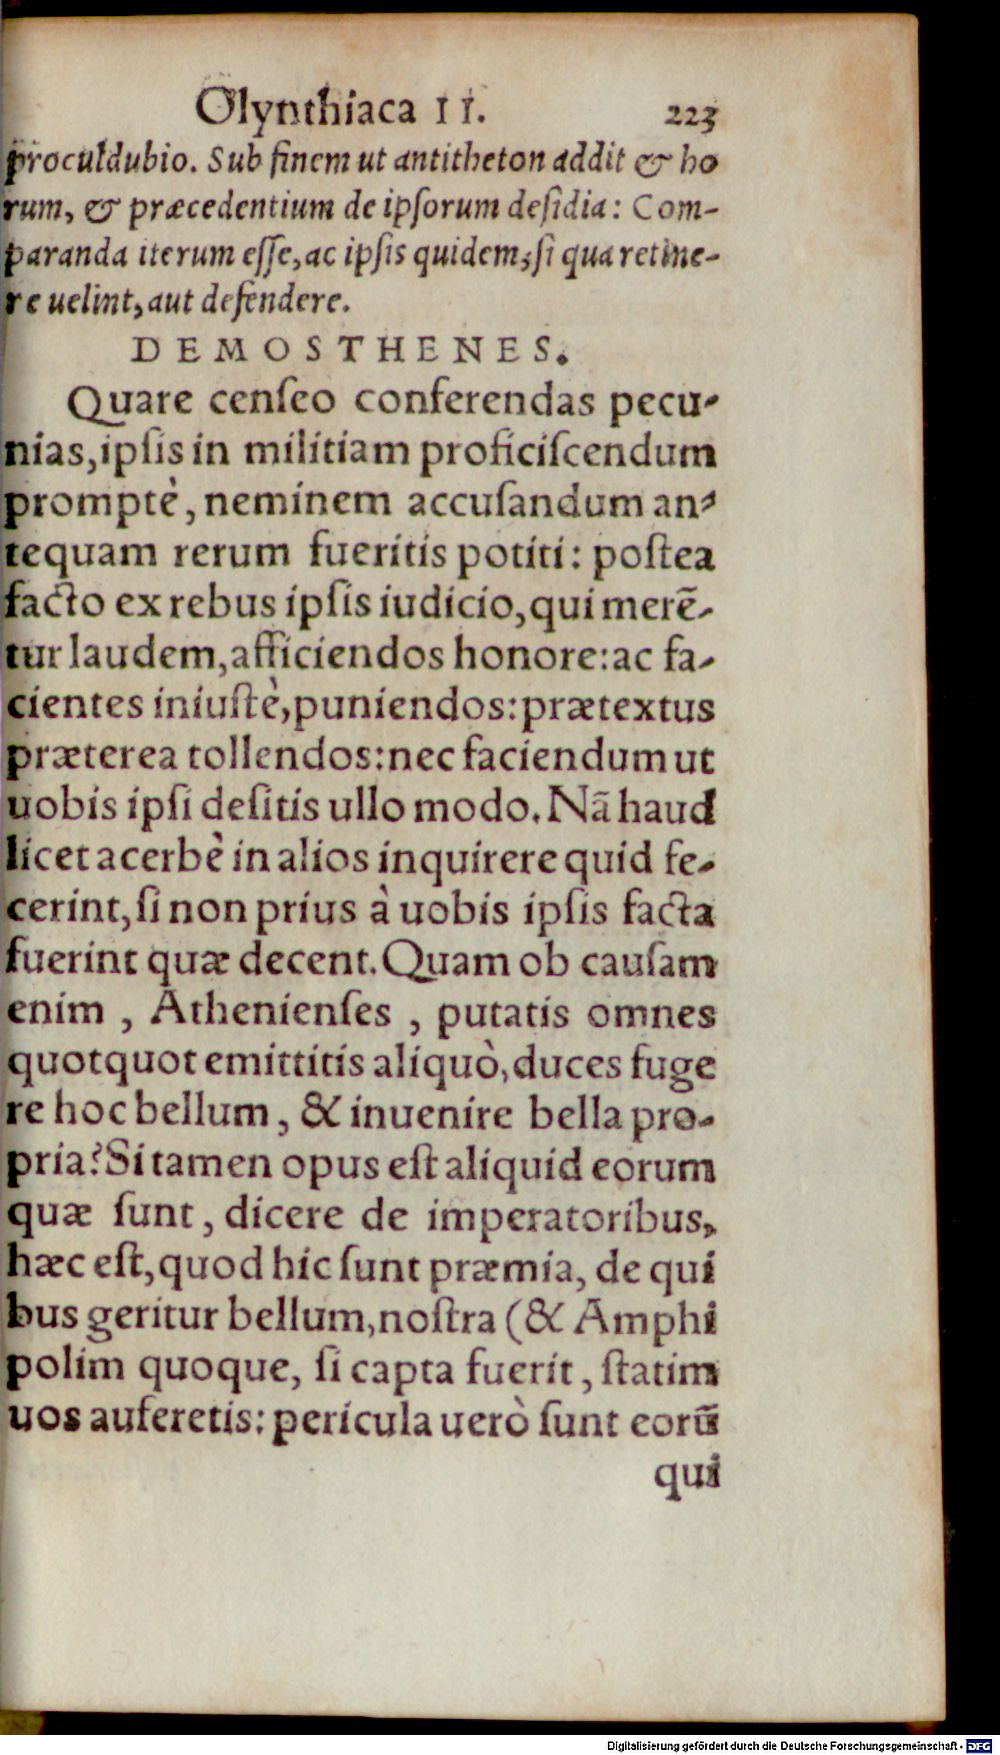 Olynthiaca II. 223
proculdubio. Sub finem ut antitheton addit & ho
rum, & præcedentium de ipſorum deſidia: Com-
paranda iterum eſſe, ac ipſis quidem, ſi qua retine-
re uelint, aut defendere.
DEMOSTHENES.
Quare cenſeo conferendas pecu-
nias, ipſis in militiam proficiſcendum
promptè, neminem accuſandum an-
tequam rerum fueritis potiti: poſtea
facto ex rebus ipſis iudicio, qui merē-
tur laudem, afficiendos honore: ac fa-
cientes iniuſtè, puniendos: prætextus
præterea tollendos: nec faciendum ut
uobis ipſi deſitis ullo modo. Nā haud
licet acerbè in alios inquirere quid fe-
cerint, ſi non prius à uobis ipſis facta
fuerint quæ decent. Quam ob cauſam
enim, Athenienſes, putatis omnes
quotquot emittitis aliquò, duces fuge
re hoc bellum, & inuenire bella pro-
pria? Si tamen opus eſt aliquid eorum
quæ ſunt, dicere de imperatoribus,
hæc eſt, quod hic ſunt præmia, de qui
bus geritur bellum, noſtra (& Amphi
polim quoque, ſi capta fuerit, ſtatim
uos auferetis: pericula uerò ſunt eorū
qui
Digitalisierung gefördert durch die Deutsche Forschungsgemeinschaft - DFG